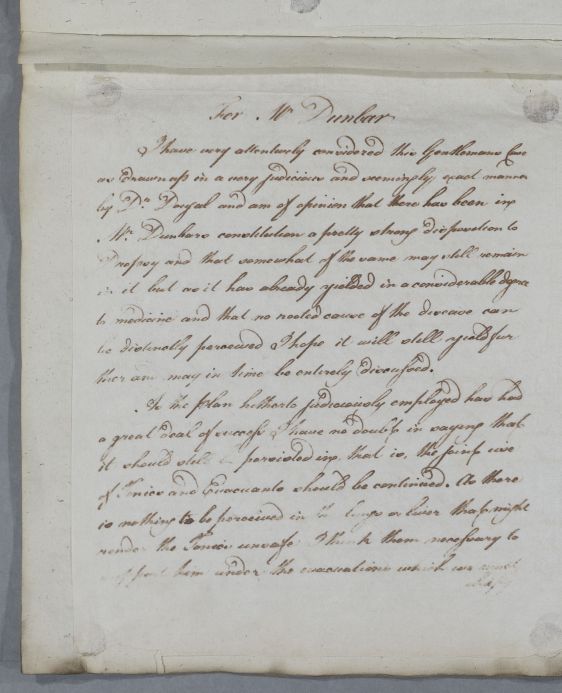 For Mr Dunbar
I have very attentively considered this Gentlemans Case
as drawn up in a very judicious and seemingly exact manner
by Dr. Dugal and am of opinion that there has been in
Mr. Dunbars constitution a pretty strong disposition to
Dropsy and that somewhat of the same may still remain
in it but as it has already yielded in a considerable degree
to medicine and that no rooted cause of the disease can
be distinctly perceived I hope it will still yield fur
ther and may in time be entirely discussed.
As the plan hitherto judiciously employed has had
a great deal of success I have no doubt in saying that
it should still be persisted in, that is, the joint use
of Tonics and Evacuants should be continued. As there
is nothing to be perceived in the lungs or liver that might
render the Tonics unsafe I think them necessary to
support him under the evacuations which we must